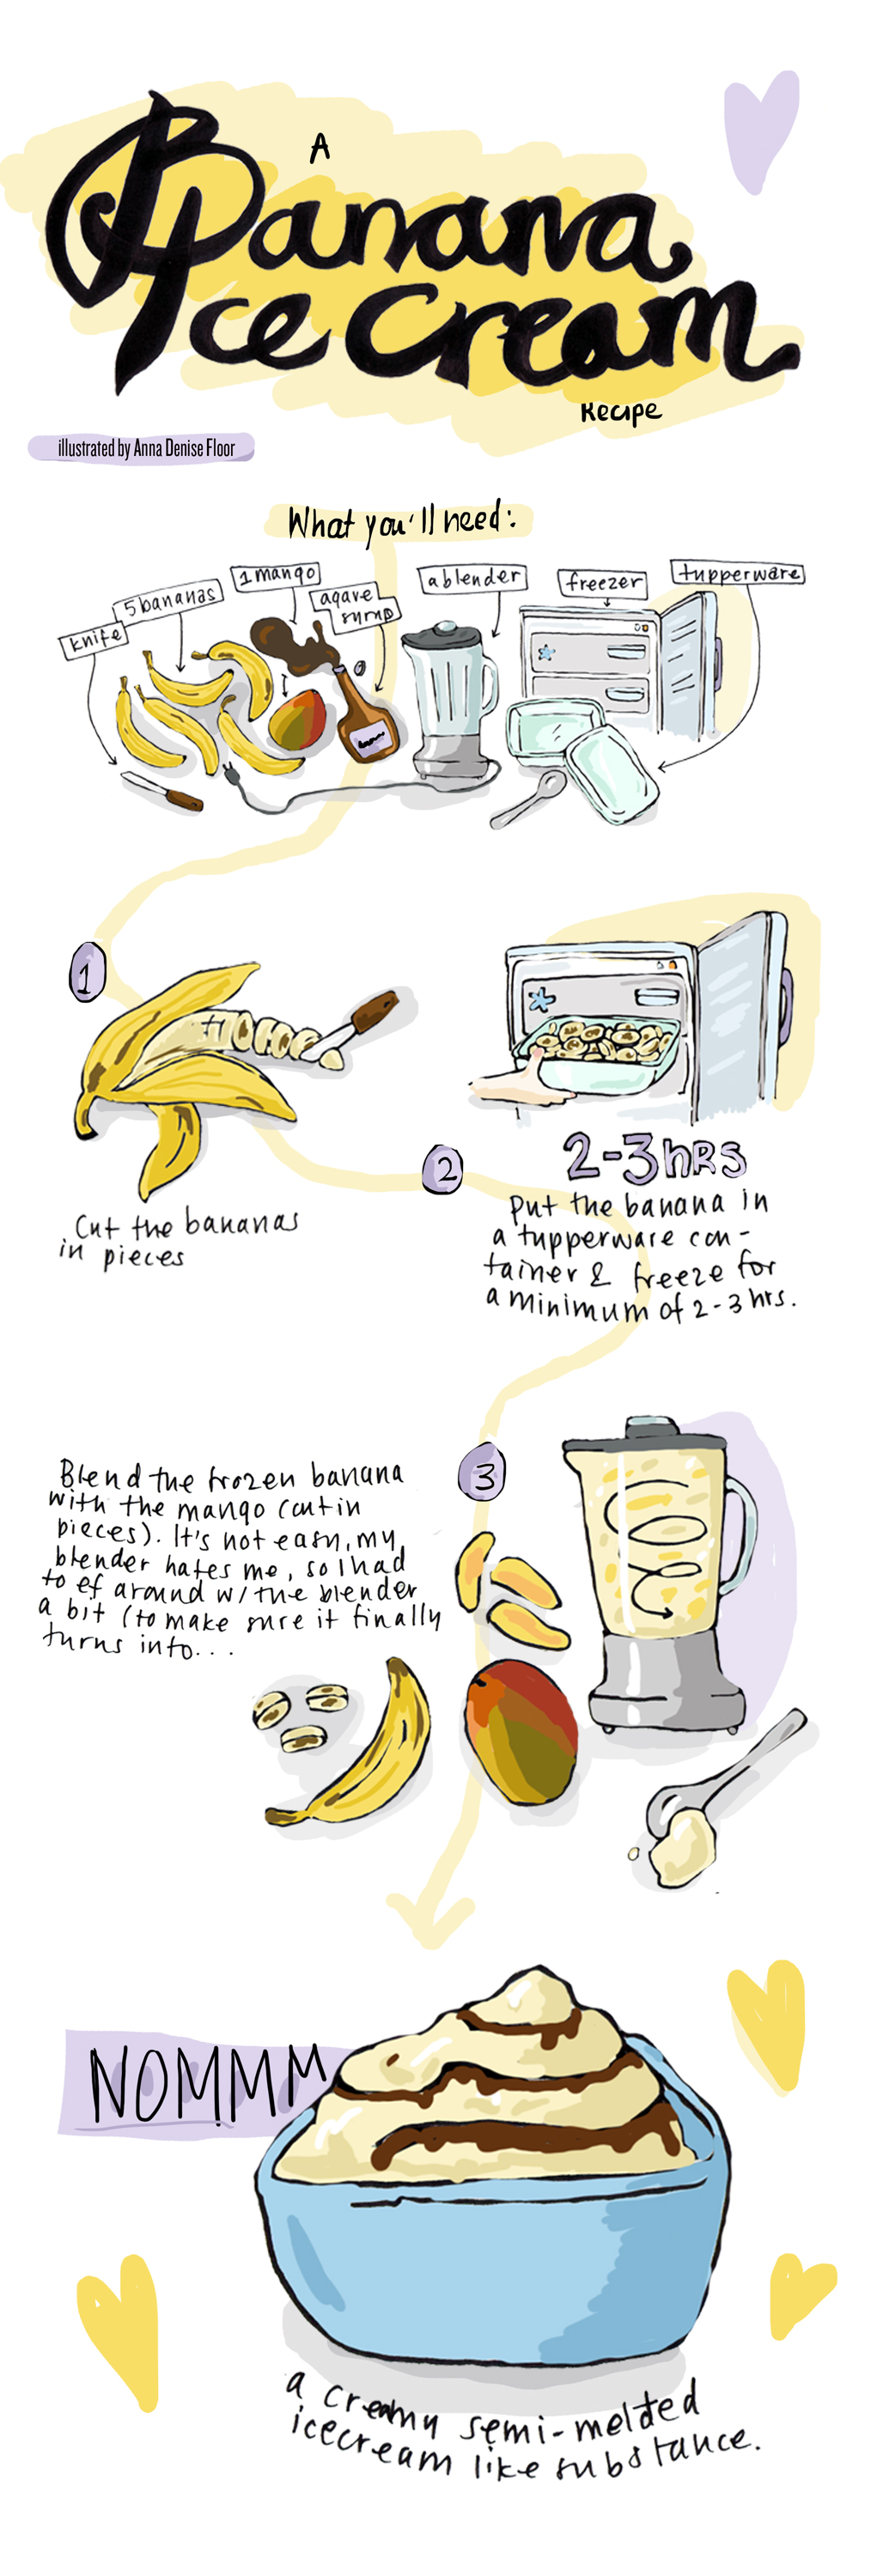 A
Banana
Ice Cream
Recipe
illustrated by Anna Denise Floor
What you'll need:
knife
5 bananas
1 mango
agave
syrup
a blender
freezer
tupperware
1
Cut the bananas
in pieces
2
2-3hRS
Put the banana in
a tupperware con-
tainer & freeze for
a minimum of 2-3 hrs.
3
Blend the frozen banana
with the mango (cut in
pieces). It's not easy, my
blender hates me, so I had
to ef around w/ the blender
a bit (to make sure it finally
turns into...
NOMMM
a creamy semi-melted
icecream like substance.